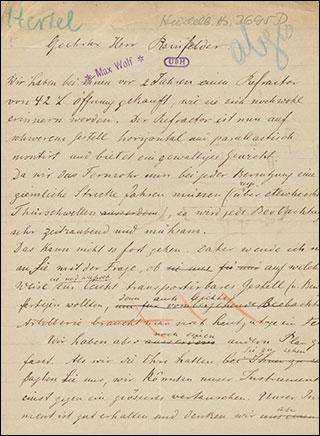 Hertel
Heidelb. Hs. 3695 D
Geehrter Herr Reinfelder
* Max Wolf *
UBH
abg
Wir haben bei Ihnen vor 2 Jahren einen Refractor
von 42 L Öffnung gekauft, wie sie sich noch wohl
erinnern werden. Der Refractor ist nun auf
schwerem Gestell horizontal und parallactisch
montirt und bietet ein gewaltiges Gewicht.
Da wir das Fernrohr nun bei jeder Benutzung eine
ziemliche Strecke fahren müssen (über etliche
Thürschwellen), so wird jede Beobachtung
sehr zeitraubend und mühsam.
Das kann nicht so fort gehen. Daher wende ich mich
an Sie mit der Frage, ob auf welche
Weise ein leicht transportables Gestell
fertigen wollen, denn auch
Artillerie braucht man noch heutzutage
Wir haben aber noch einen andern Plan ge-
fasst. Als wir die Ehre hatten bei Sie zu sehen
sagten Sie uns, wir könnten unser Instrument
einst gegen ein grösseres vertauschen. Unser In-
ment ist gut erhalten und denken wir